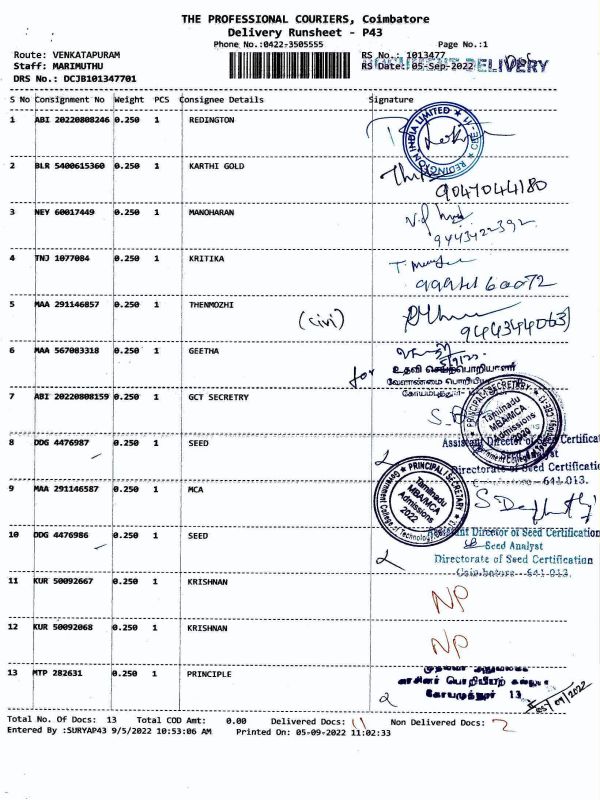 THE PROFESSIONAL COURIERS, Coimbatore
Delivery Runsheet - P43
Phone No.:0422-3505555 Page No.:1
Route: VENKATAPURAM RS No.: 1013477
Staff: MARIMUTHU RS Date: 05-Sep-2022 DELIVERY
DRS No.: DCJB101347701
S No Consignment No Weight PCS Consignee Details Signature
1 ABI 20220808246 0.250 1 REDINGTON
REDINGTON INDIA LIMITED
2 BLR 5400615360 0.250 1 KARTHI GOLD
9047044180
3 NEY 60017449 0.250 1 MANOHARAN
9443422392
4 TNJ 1077084 0.250 1 KRITIKA
5 MAA 291146857 0.250 1 THENMOZHI
(civi)
6 MAA 567083318 0.250 1 GEETHA
for
உதவி செயற்பொறியாளர்
வேளாண்மை
7 ABI 20220808159 0.250 1 GCT SECRETRY
PRINCIPAL / SECRETARY
Tamilnadu
MBA/MCA
Admissions
2022
8 DDG 4476987 0.250 1 SEED
Assistant Director of Seed Certificati
Seed Analyst
Directorate of Seed Certificatio
Coimbatore - 641 013.
9 MAA 291146587 0.250 1 MCA
PRINCIPAL / SECRETARY
Tamilnadu
MBA/MCA
Admissions
2022
Government College of Technology
10 DDG 4476986 0.250 1 SEED
Assistant Director of Seed Certification
Seed Analyst
Directorate of Seed Certification
Coimbatore - 641 013.
11 KUR 50092667 0.250 1 KRISHNAN
NP
12 KUR 50092068 0.250 1 KRISHNAN
NP
13 MTP 282631 0.250 1 PRINCIPLE
05/09/2022
Total No. Of Docs: 13 Total COD Amt: 0.00 Delivered Docs: 11 Non Delivered Docs: 2
Entered By :SURYAP43 9/5/2022 10:53:06 AM Printed On: 05-09-2022 11:02:33